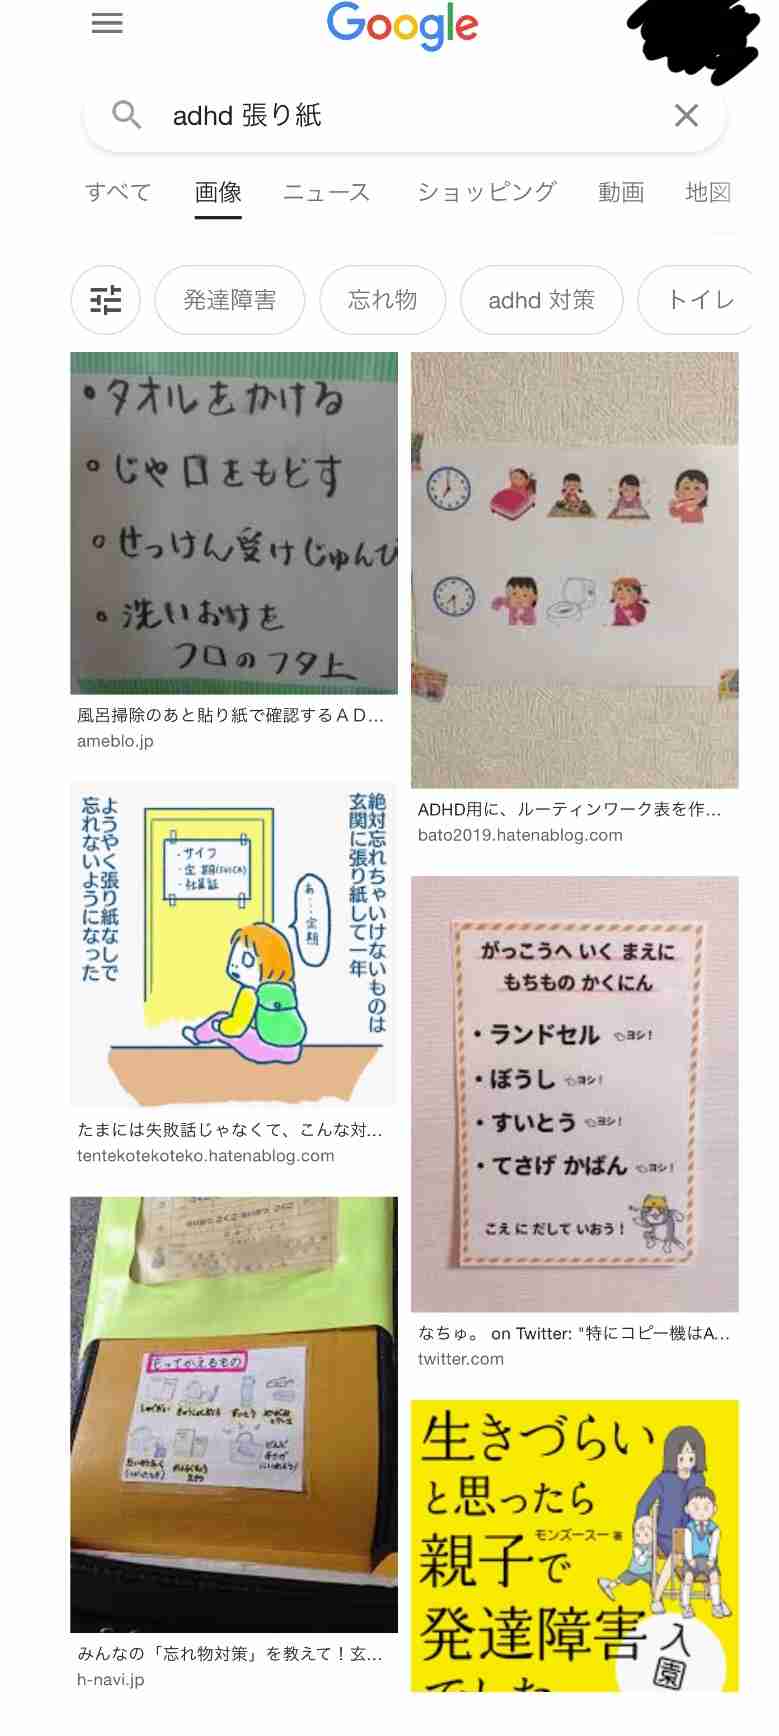 Google
adhd 張り紙
すべて 画像 ニュース ショッピング 動画 地図
発達障害 忘れ物 adhd 対策 トイレ
・タオルをかける
・じゃ口をもどす
・せっけん受けじゅんび
・洗いおけを
フロのフタ上
風呂掃除のあと貼り紙で確認するＡＤ...
ameblo.jp
ADHD用に、ルーティンワーク表を作...
bato2019.hatenablog.com
絶対忘れちゃいけないものは
玄関に張り紙して一年
・サイフ
・定期(SUICA)
・社員証
あ…定期
ようやく張り紙なしで
忘れないようになった
たまには失敗話じゃなくて、こんな対...
tentekotekoteko.hatenablog.com
がっこうへ いく まえに
もちもの かくにん
・ランドセル ヨシ！
・ぼうし ヨシ！
・すいとう ヨシ！
・てさげ かばん ヨシ！
こえ に だして いおう！
なちゅ。 on Twitter: "特にコピー機はA...
twitter.com
もってかえるもの
すいとう
みんなの「忘れ物対策」を教えて！玄...
h-navi.jp
生きづらい
と思ったら
モンズースー 著
親子で
発達障害
でした
入園